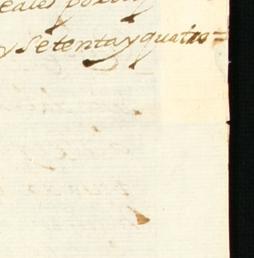 eales por
y setenta y quatro=